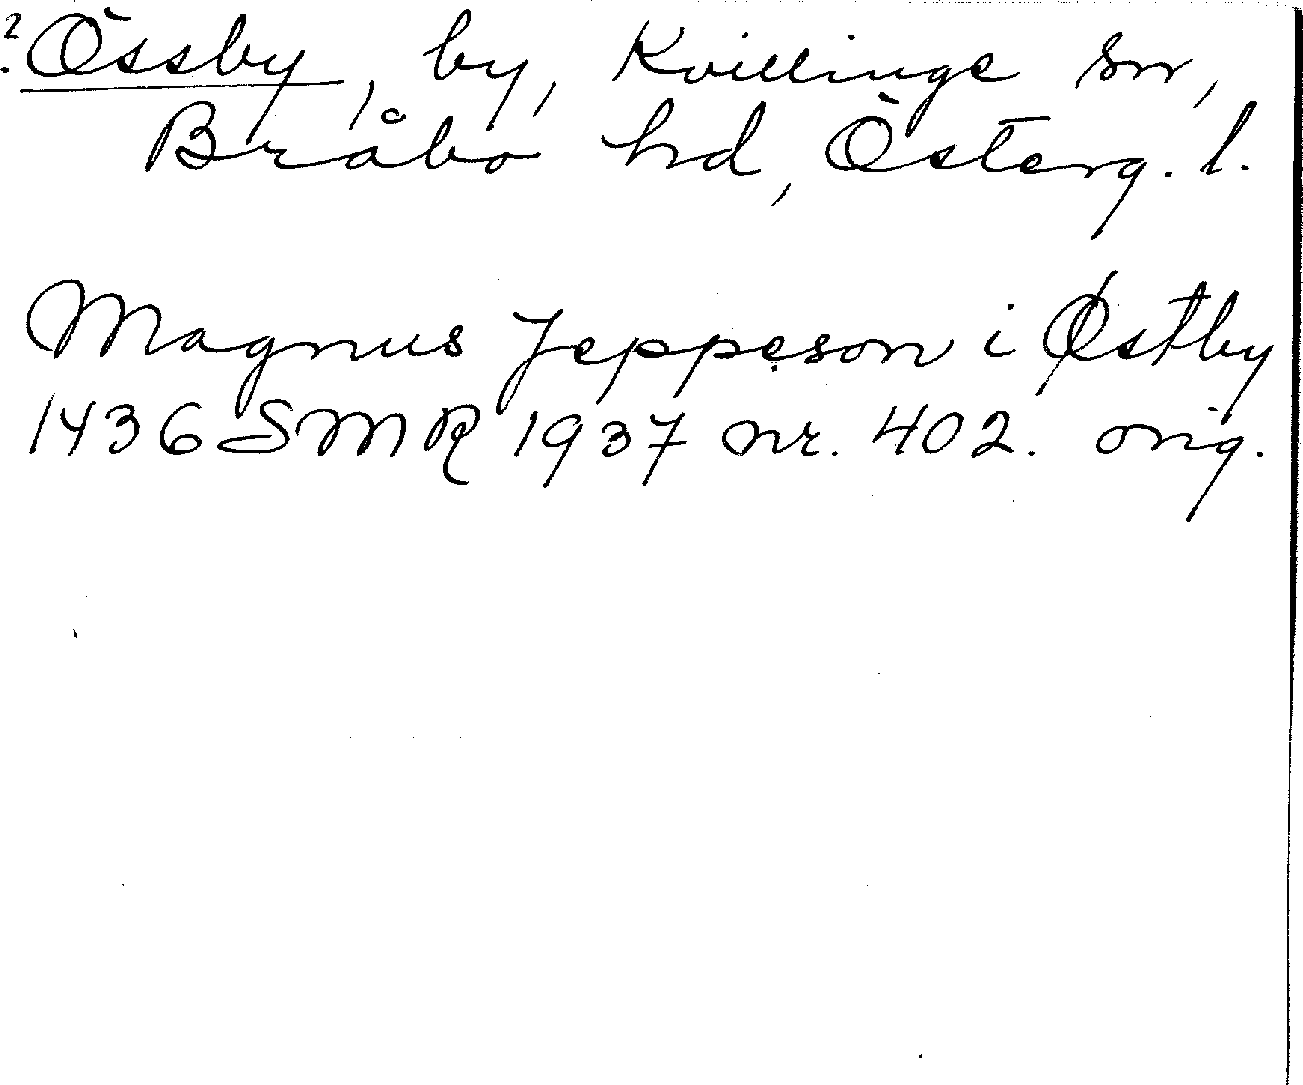 ? Össby, by, Kvillinge sn,
Bråbo hd, Österg. l.
Magnus Jeppeson i Østby
1436 SMR 1937 nr. 402. orig.